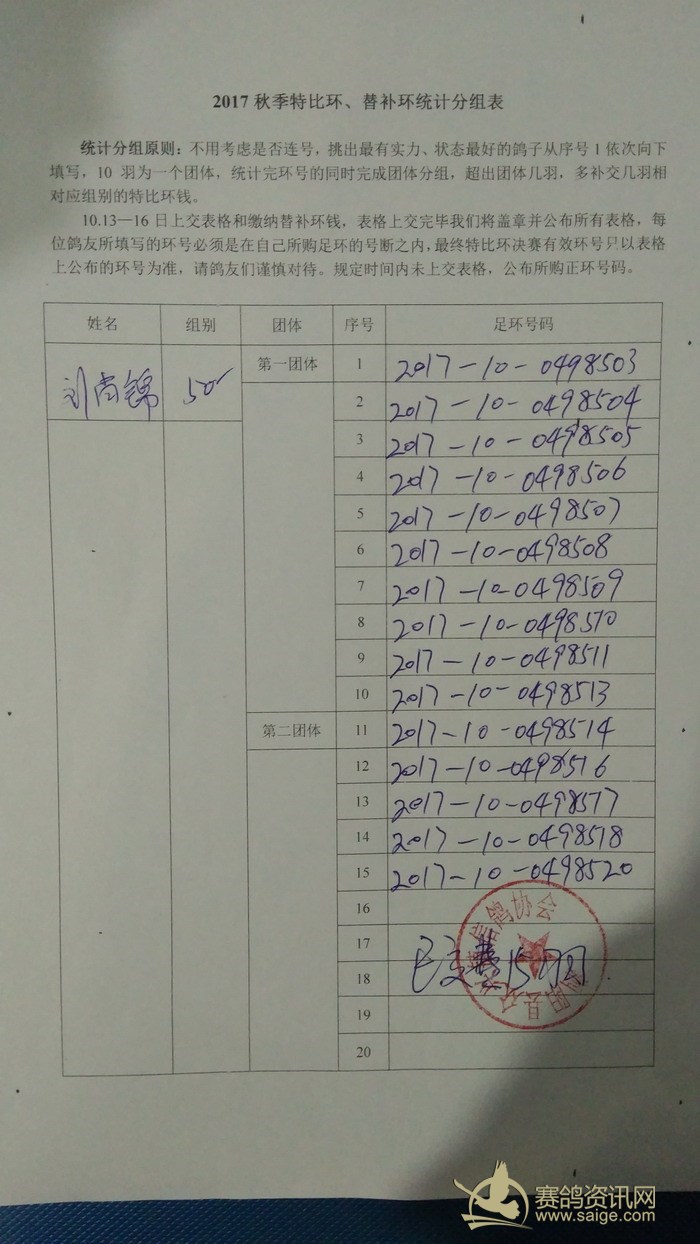 2017 秋季特比环、替补环统计分组表
统计分组原则：不用考虑是否连号，挑出最有实力、状态最好的鸽子从序号 1 依次向下
填写，10 羽为一个团体，统计完环号的同时完成团体分组，超出团体几羽，多补交几羽相
对应组别的特比环钱。
10.13—16 日上交表格和缴纳替补环钱，表格上交完毕我们将盖章并公布所有表格，每
位鸽友所填写的环号必须是在自己所购足环的号断之内，最终特比环决赛有效环号只以表格
上公布的环号为准，请鸽友们谨慎对待。规定时间内未上交表格，公布所购正环号码。
姓名 组别 团体 序号 足环号码
刘尚锦 50 第一团体 1 2017-10-0498503
2 2017-10-0498504
3 2017-10-0498505
4 2017-10-0498506
5 2017-10-0498507
6 2017-10-0498508
7 2017-10-0498509
8 2017-10-0498510
9 2017-10-0498511
10 2017-10-0498513
第二团体 11 2017-10-0498514
12 2017-10-0498516
13 2017-10-0498517
14 2017-10-0498518
15 2017-10-0498520
16
17
18
19
20
信鸽协会
赛鸽资讯网
www.saige.com